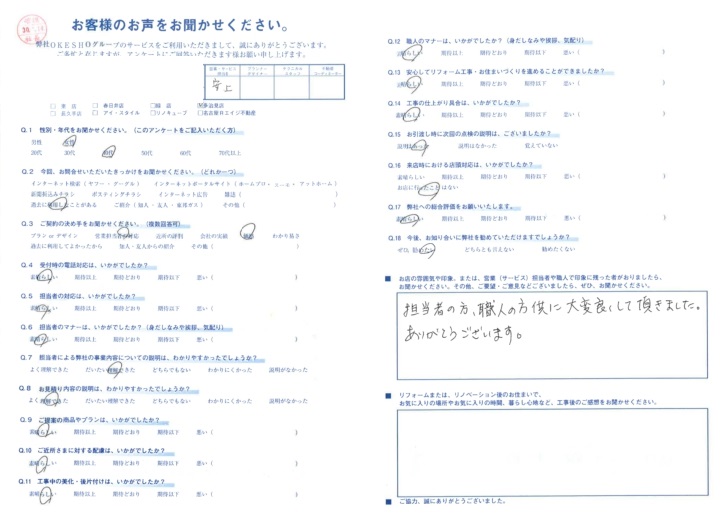 お客様のお声をお聞かせください。
弊社OKESHOグループのサービスをご利用いただきまして、誠にありがとうございます。
東店 春日井店 緑店
名東店 アイ・スタイル リノキューブ 名古屋ロエイジ不動産
Q.1 性別・年代をお聞かせください。（このアンケートをご記入いただく方）
男性 女性
20代 30代 40代 50代 60代 70代以上
Q.2 今回、お問合せいただいたきっかけをお聞かせください。（どれか一つ）
インターネット検索（ヤフー・グーグル） インターネットポータルサイト（ホームプロ・スーモ・アットホーム）
新聞折込みチラシ ポスティングチラシ インターネット広告 雑誌（ ）
過去に使用したことがある ご紹介（知人・友人・東邦ガス） その他（ ）
Q.3 ご契約の決め手をお聞かせください。（複数回答可）
プラン or デザイン 営業担当者の対応 近所の評判 会社の実績 価格 わかり易さ
過去に利用してよかったから 知人・友人からの紹介 その他（ ）
Q.4 受付時の電話対応は、いかがでしたか？
素晴らしい 期待以上 期待どおり 期待以下 悪い（ ）
Q.5 担当者の対応は、いかがでしたか？
素晴らしい 期待以上 期待どおり 期待以下 悪い（ ）
Q.6 担当者のマナーは、いかがでしたか？（身だしなみや挨拶、気配り）
素晴らしい 期待以上 期待どおり 期待以下 悪い（ ）
Q.7 担当者による弊社の事業内容についての説明は、わかりやすかったでしょうか？
よく理解できた だいたい理解できた どちらでもない わかりにくかった 説明がなかった
Q.8 お見積り内容の説明は、わかりやすかったでしょうか？
よく理解できた だいたい理解できた どちらでもない わかりにくかった 説明がなかった
Q.9 ご提案の商品やプランは、いかがでしたか？
素晴らしい 期待以上 期待どおり 期待以下 悪い（ ）
Q.10 ご近所さまに対する配慮は、いかがでしたか？
素晴らしい 期待以上 期待どおり 期待以下 悪い（ ）
Q.11 工事中の美化・後片付けは、いかがでしたか？
素晴らしい 期待以上 期待どおり 期待以下 悪い（ ）
Q.12 職人のマナーは、いかがでしたか？（身だしなみや挨拶、気配り）
素晴らしい 期待以上 期待どおり 期待以下 悪い（ ）
Q.13 安心してリフォーム工事・お住まいづくりを進めることができましたか？
素晴らしい 期待以上 期待どおり 期待以下 悪い（ ）
Q.14 工事の仕上がり具合は、いかがでしたか？
素晴らしい 期待以上 期待どおり 期待以下 悪い（ ）
Q.15 お引渡し時に次回の点検の説明は、ございましたか？
説明はあった 説明はなかった 覚えていない
Q.16 来店時における店頭対応は、いかがでしたか？
素晴らしい 期待以上 期待どおり 期待以下 悪い（ ）
お店に行ったことはない
Q.17 弊社への総合評価をお願いいたします。
素晴らしい 期待以上 期待どおり 期待以下 悪い（ ）
Q.18 今後、お知り合いに弊社を勧めていただけますでしょうか？
ぜひ、勧めたい どちらとも言えない 勧めたくない
■ お店の雰囲気や印象、または、営業（サービス）担当者や職人で印象に残った者がおりましたら、
お聞かせください。その他、ご要望・ご意見などございましたら、ぜひ、お聞かせください。
担当者の方、職人の方供に大変良くして頂きました。
ありがとうございます。
■ リフォームまたは、リノベーション後のお住まいで、
お気に入りの場所やお気に入りの時間、暮らし心地など、工事後のご感想をお聞かせください。
■ ご協力、誠にありがとうございました。